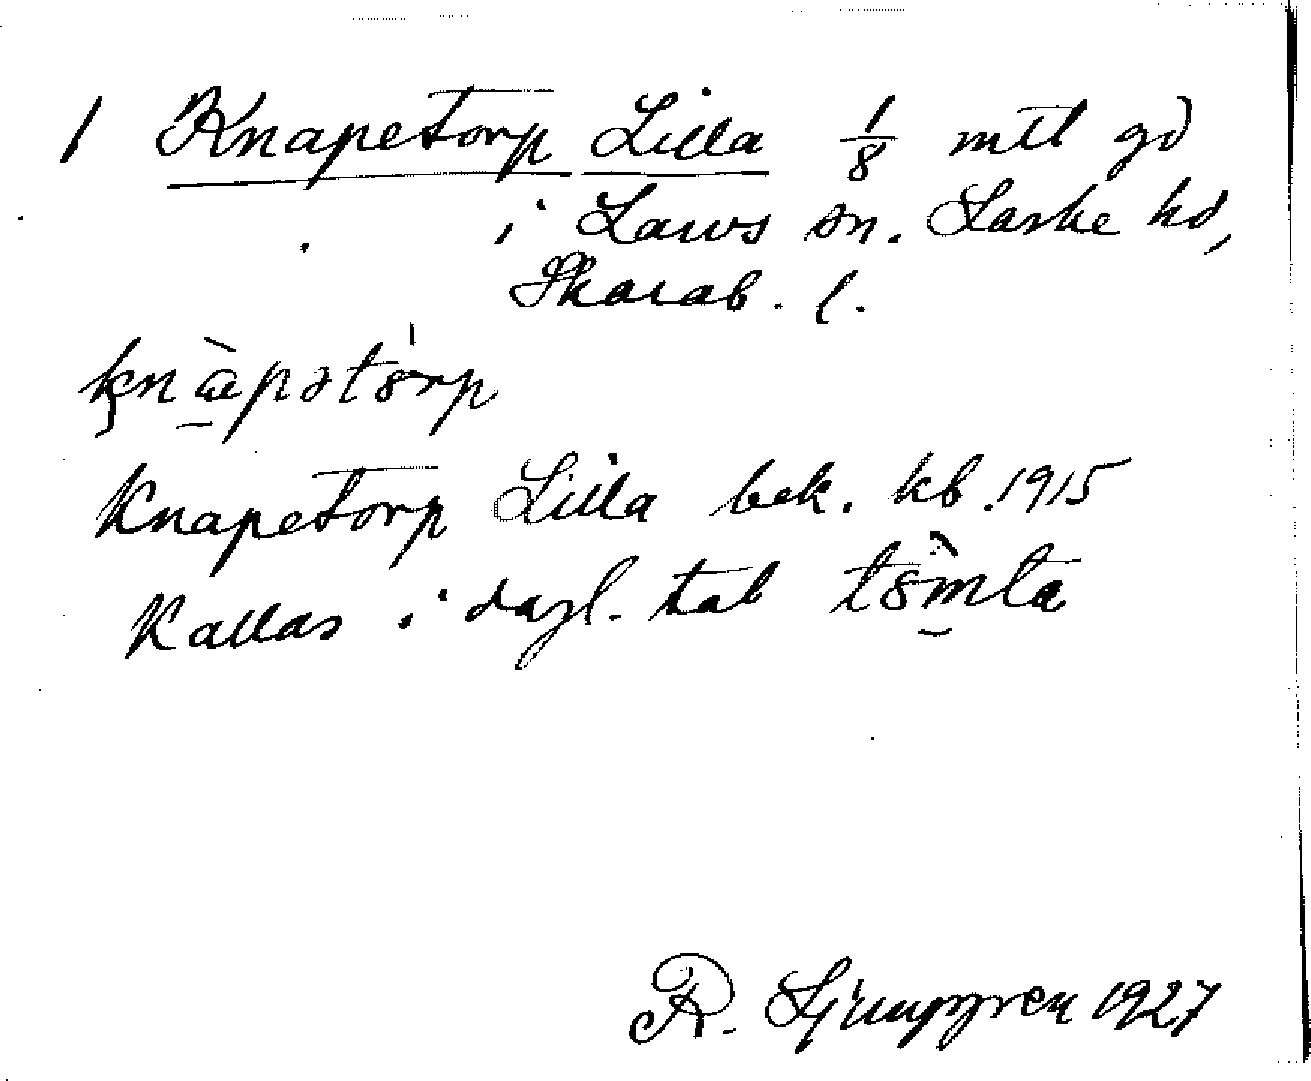 1 Knapetorp Lilla 1/8 mtl gd
i Larvs sn. Laske hd,
Skarab. l.
knàpətórp
Knapetorp Lilla bek. kb. 1915
Kallas i dagl. tal tòmta
R. Ljunggren 1927